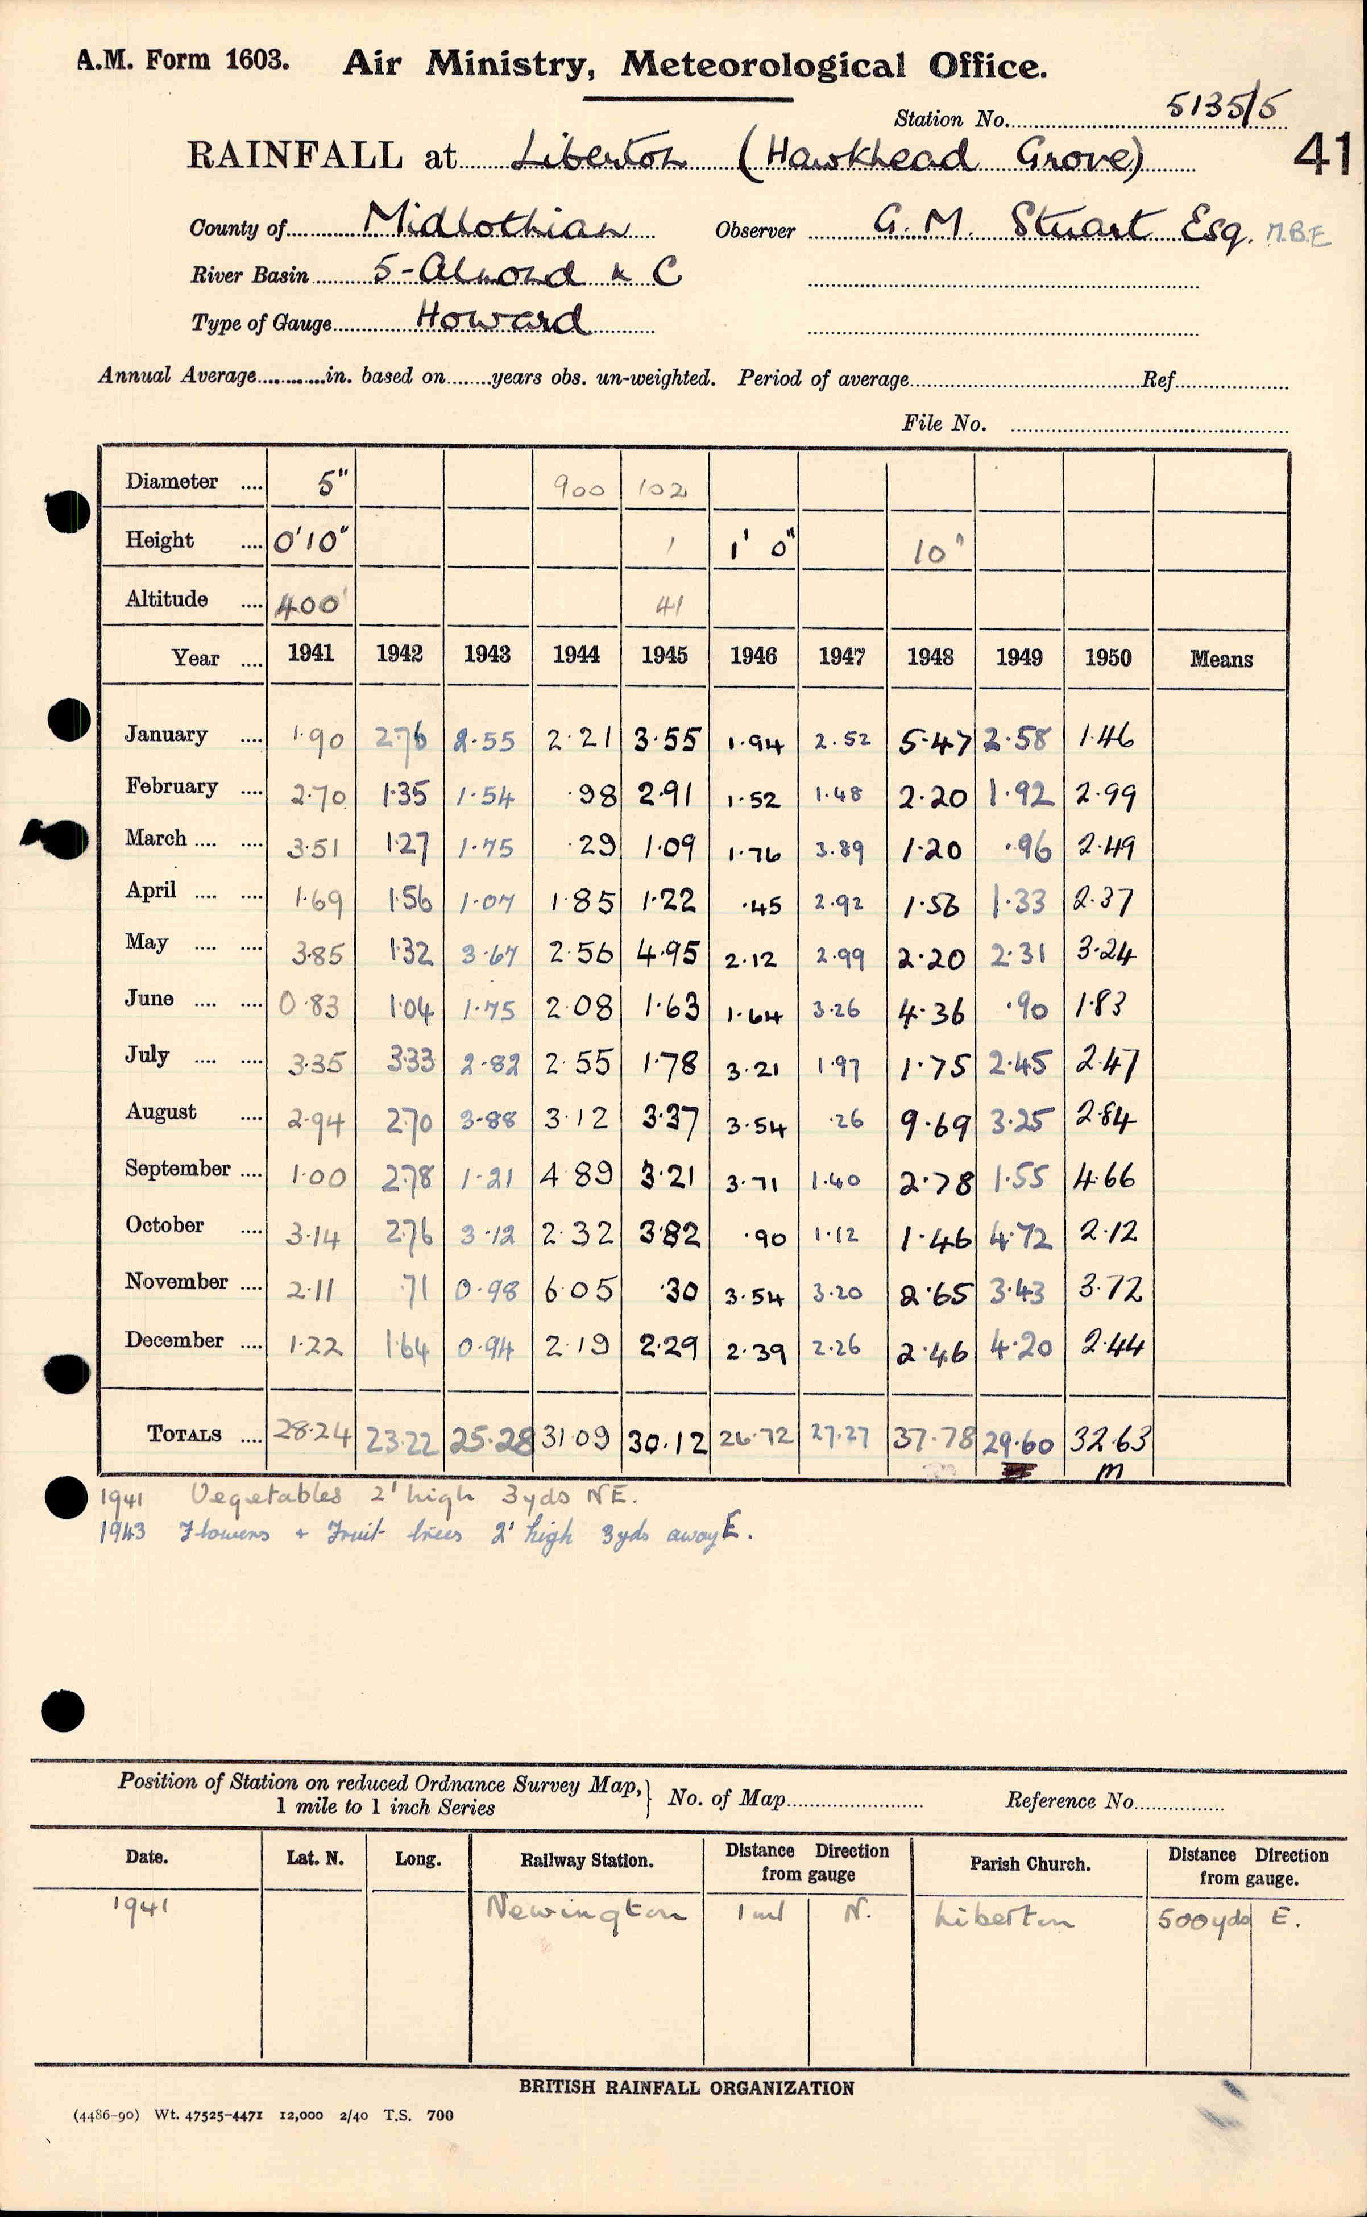 A.M. Form 1603. Air Ministry, Meteorological Office.
Station No. 5135/5
RAINFALL at Liberton (Hawkhead Grove) 41
County of Midlothian Observer G. M. Stuart Esq. M.B.E
River Basin 5-Almond & C
Type of Gauge Howard
Annual Average in. based on years obs. un-weighted. Period of average Ref
File No.
Diameter 5" 900 102
Height 0'10" 1 1' 0" 10"
Altitude 400' 41
Year 1941 1942 1943 1944 1945 1946 1947 1948 1949 1950 Means
January 1.90 2.76 2.55 2.21 3.55 1.94 2.52 5.47 2.58 1.46
February 2.70 1.35 1.54 .98 2.91 1.52 1.48 2.20 1.92 2.99
March 3.51 1.27 1.75 .29 1.09 1.76 3.89 1.20 .96 2.49
April 1.69 1.56 1.07 1.85 1.22 .45 2.92 1.56 1.33 2.37
May 3.85 1.32 3.67 2.56 4.95 2.12 2.99 2.20 2.31 3.24
June 0.83 1.04 1.75 2.08 1.63 1.64 3.26 4.36 .90 1.83
July 3.35 3.33 2.82 2.55 1.78 3.21 1.97 1.75 2.45 2.47
August 2.94 2.70 3.88 3.12 3.37 3.54 .26 9.69 3.25 2.84
September 1.00 2.78 1.21 4.89 3.21 3.71 1.40 2.78 1.55 4.66
October 3.14 2.76 3.12 2.32 3.82 .90 1.12 1.46 4.72 2.12
November 2.11 .71 0.98 6.05 .30 3.54 3.20 2.65 3.43 3.72
December 1.22 1.64 0.94 2.19 2.29 2.39 2.26 2.46 4.20 2.44
TOTALS 28.24 23.22 25.28 31.09 30.12 26.72 27.27 37.78 29.60 32.63
m
1941 Vegetables 2' high 3yds NE.
1943 Flowers + Fruit trees 2' high 3yds away E.
Position of Station on reduced Ordnance Survey Map, No. of Map Reference No.
1 mile to 1 inch Series
Date. Lat. N. Long. Railway Station. Distance Direction from gauge Parish Church. Distance Direction from gauge.
1941 Newington 1 ml N. Liberton 500yds E.
BRITISH RAINFALL ORGANIZATION
(4486-90) Wt. 47525-4471 12,000 2/40 T.S. 700